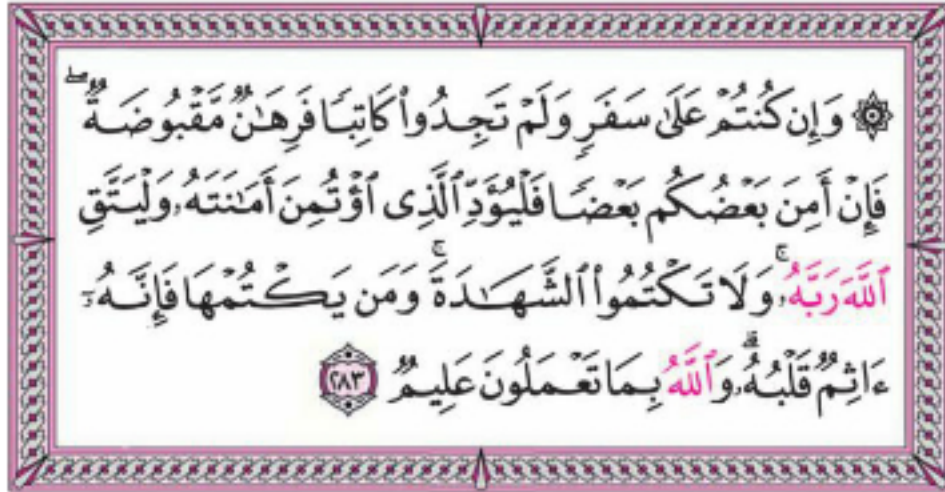 ۞ وَإِن كُنتُمۡ عَلَىٰ سَفَرٖ وَلَمۡ تَجِدُواْ كَاتِبٗا فَرِهَٰنٞ مَّقۡبُوضَةٞۖ
فَإِنۡ أَمِنَ بَعۡضُكُم بَعۡضٗا فَلۡيُؤَدِّ ٱلَّذِي ٱؤۡتُمِنَ أَمَٰنَتَهُۥ وَلۡيَتَّقِ
ٱللَّهَ رَبَّهُۥۚ وَلَا تَكۡتُمُواْ ٱلشَّهَٰدَةَۚ وَمَن يَكۡتُمۡهَا فَإِنَّهُۥٓ
ءَاثِمٞ قَلۡبُهُۥۗ وَٱللَّهُ بِمَا تَعۡمَلُونَ عَلِيمٞ ٢٨٣